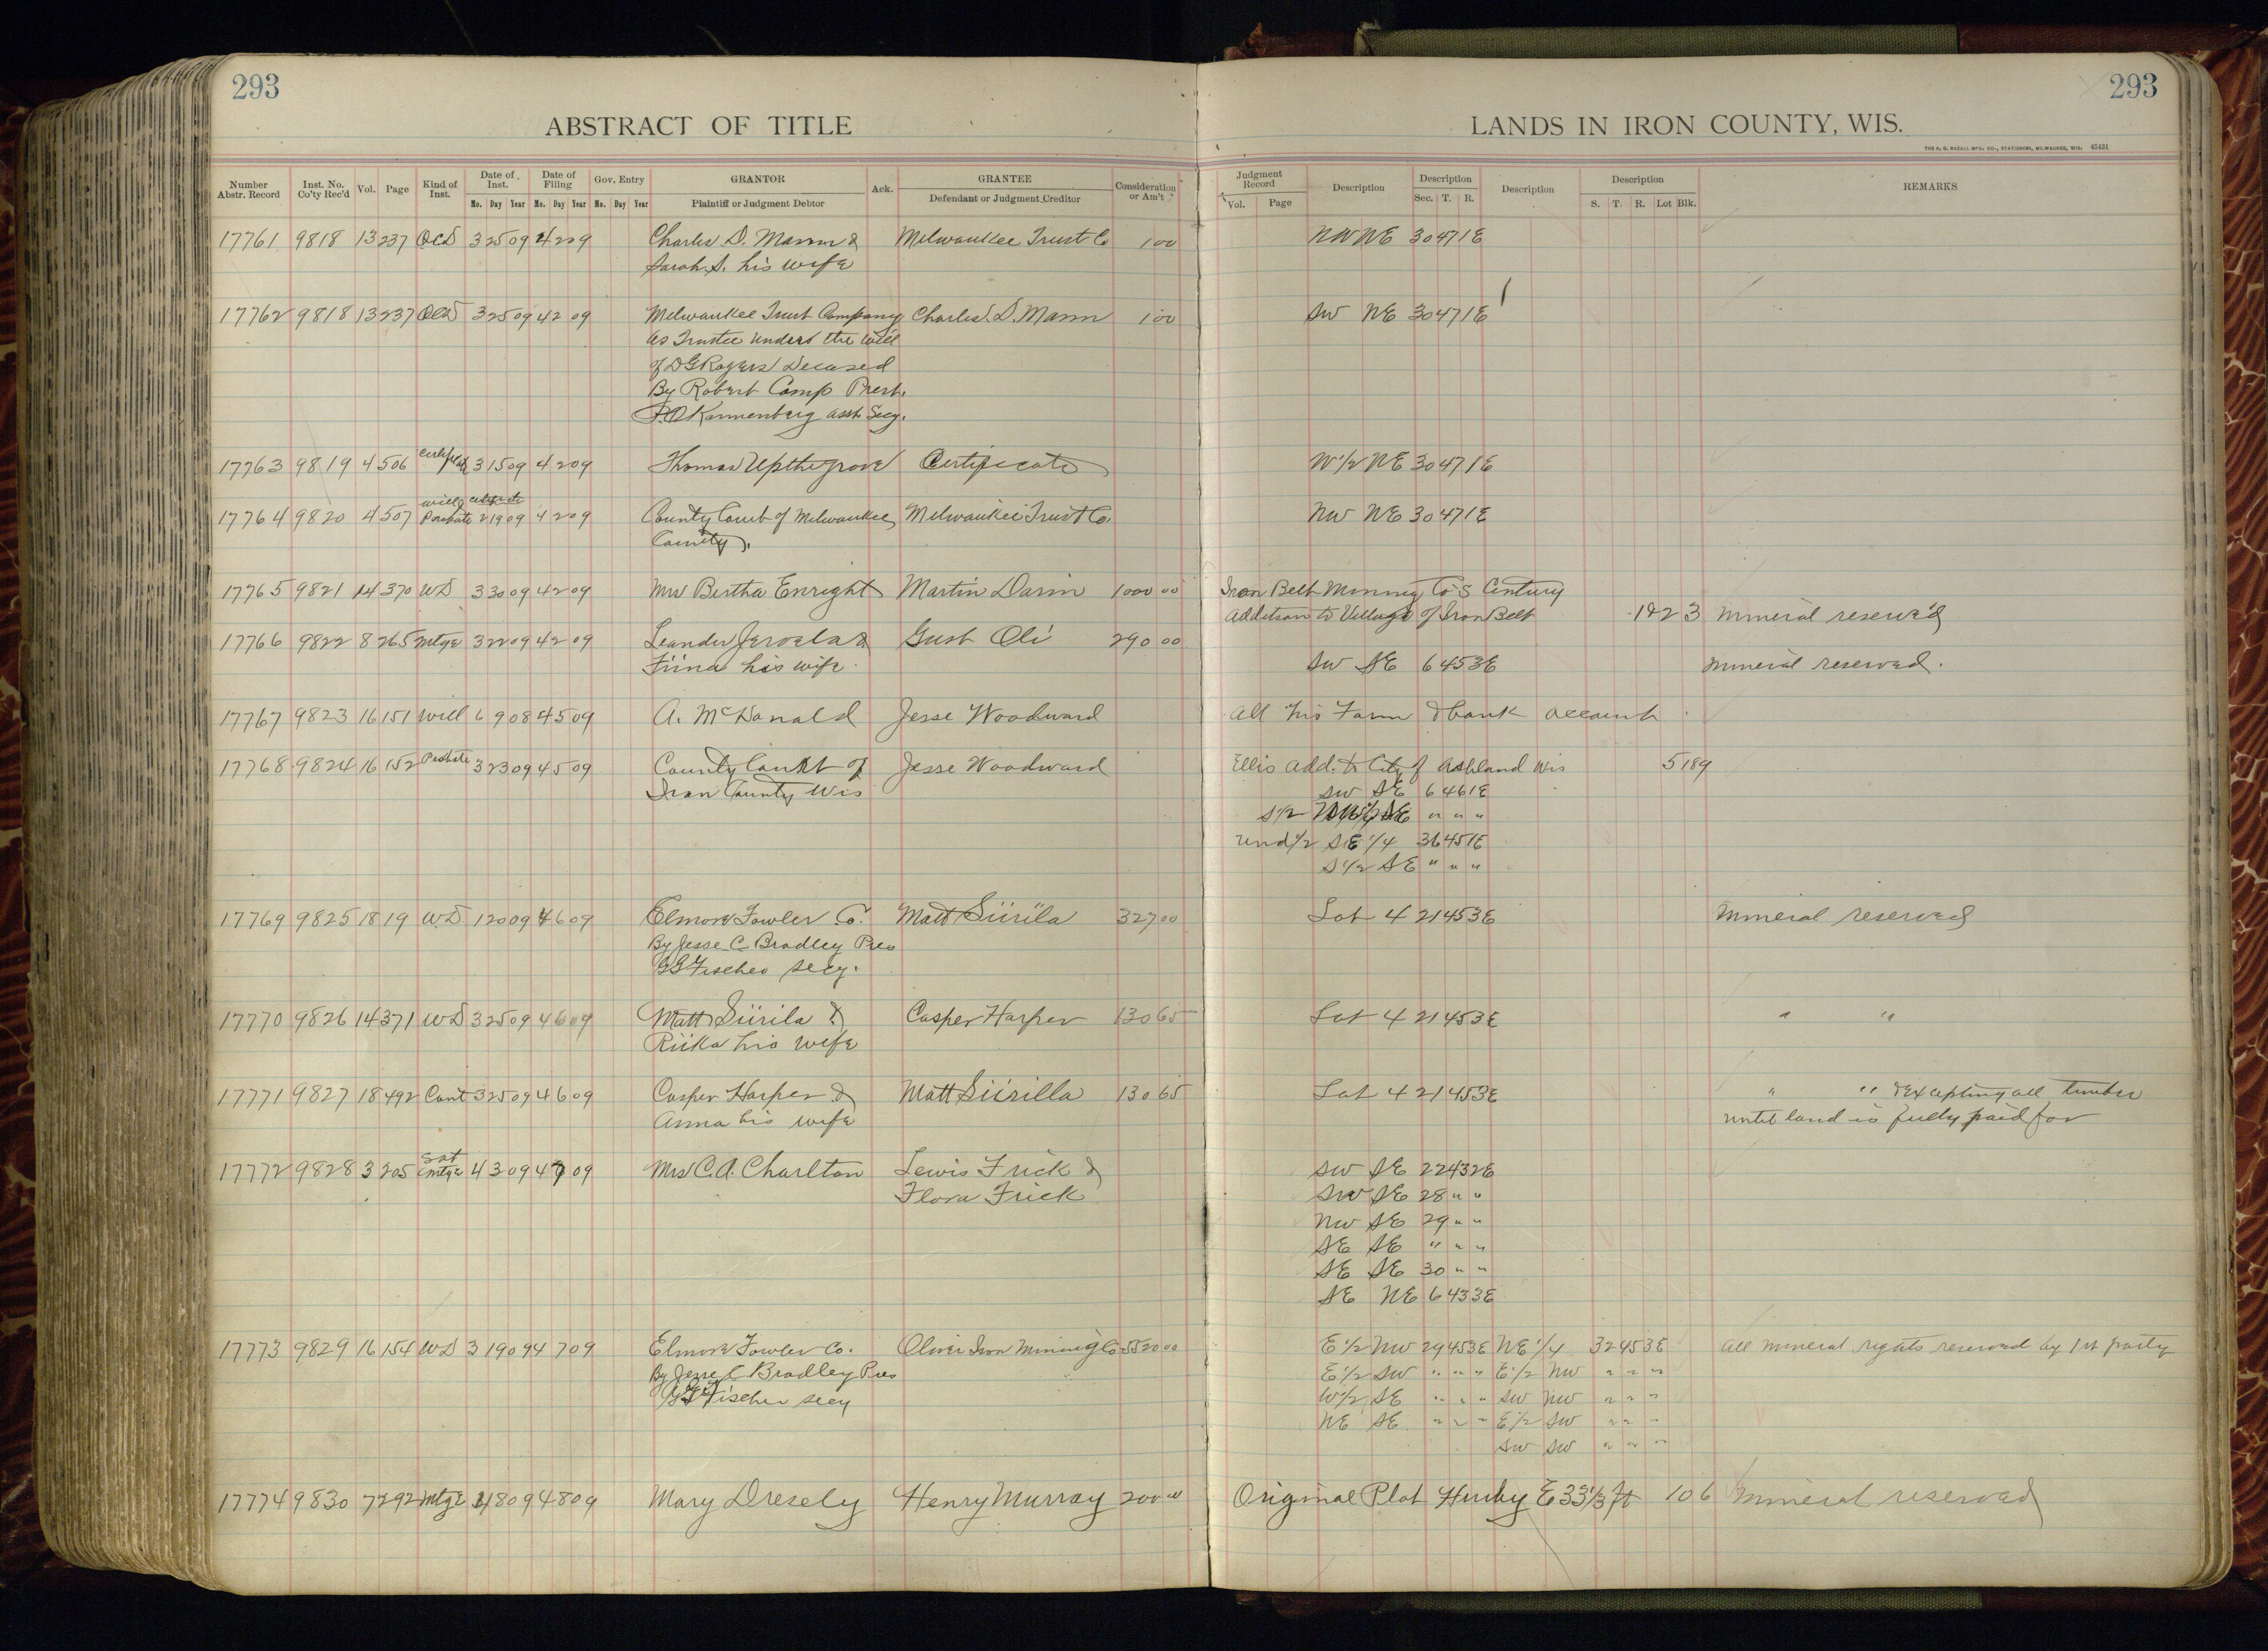 293
293
ABSTRACT OF TITLE
LANDS IN IRON COUNTY, WIS.
THE H. G. RAZALL MFG. CO., STATIONERS, MILWAUKEE, WIS. 45431
Number Abstr. Record Inst. No. Co'ty Rec'd Vol. Page Kind of Inst. Date of Inst. Mo. Day Year Date of Filing Mo. Day Year Gov. Entry Mo. Day Year GRANTOR Plaintiff or Judgment Debtor Ack. GRANTEE Defendant or Judgment Creditor Consideration or Am't Judgment Record Vol. Page Description Description Sec. T. R. Description Description S. T. R. Lot Blk. REMARKS
17761 9818 13 237 QCD 3 25 09 4 2 09 Charles D. Mann & Milwaukee Trust Co 1 00 NW NE 30 47 1E
Sarah S. his wife
17762 9818 13 237 QCD 3 25 09 4 2 09 Milwaukee Trust Company Charles D. Mann 1 00 SW NE 30 47 1E
As Trustee under the will
of D G Rogers Decased
By Robert Camp Prest.
Kannenberg asst. Secy.
17763 9819 4 506 Certificate 3 15 09 4 2 09 Thomas Upthegrove Certificate W 1/2 NE 30 47 1E
17764 9820 4 507 will & Certificate Porobate 2 19 09 4 2 09 County Court of Milwaukee Milwaukee Trust Co. NW NE 30 47 1E
County.
17765 9821 14 370 WD 3 30 09 4 2 09 Mrs Bertha Enright Martin Darin 1000 00 Iron Belt Mining Co's Century
Addition to Village of Iron Belt 1&2 3 Mineral reserved
17766 9822 8 265 Mtge 3 22 09 4 2 09 Leander Jervela & Gust Oli 290 00
Fiina his wife SW SE 6 45 3E Mineral reserved.
17767 9823 16 151 Will 6 9 08 4 5 09 A. McDonald Jesse Woodward All his Farm & bank account
17768 9824 16 152 Probate 3 23 09 4 5 09 County Court of Jesse Woodward Ellis Add. to City of Ashland Wis 5 189
Iron County Wis SW SE 6 46 1E
S 1/2 SE " " "
und 1/2 SE 1/4 36 45 1E
S 1/2 SE " " "
17769 9825 18 19 WD 1 20 09 4 6 09 Elmore Fowler Co. Matt Siirila 327 00 Lot 4 21 45 3E Mineral reserved
By Jesse C. Bradley Pres
Fischer Secy.
17770 9826 14 371 WD 3 25 09 4 6 09 Matt Siirila & Casper Harper 130 65 Lot 4 21 45 3E " "
Riika his wife
17771 9827 18 492 Cont 3 25 09 4 6 09 Casper Harper & Matt Siirilla 130 65 Lot 4 21 45 3E " " & Excepting all timber
Anna his wife until land is fully paid for
17772 9828 3 205 Sat Mtge 4 3 09 4 7 09 Mrs C.A. Charlton Lewis Frick & SW SE 22 43 2E
Flora Frick SW SE 28 " "
NW SE 29 " "
SE SE " " "
SE SE 30 " "
SE NE 6 43 3E
17773 9829 16 154 WD 3 19 09 4 7 09 Elmore Fowler Co. Oliver Iron Mining Co 5520 00 E 1/2 NW 29 45 3E NE 1/4 32 45 3E All mineral rights reserved by 1st party
By Jesse C Bradley Pres E 1/2 SW " " " E 1/2 NW " " "
Fischer Secy W 1/2 SE " " " SW NW " " "
NE SE " " " E 1/2 SW " " "
SW SW " " "
17774 9830 7 292 Mtge 4 8 09 4 8 09 Mary Dresely Henry Murray 200 00 Original Plat Hurley E 33 1/3 ft 10 6 Mineral reserved